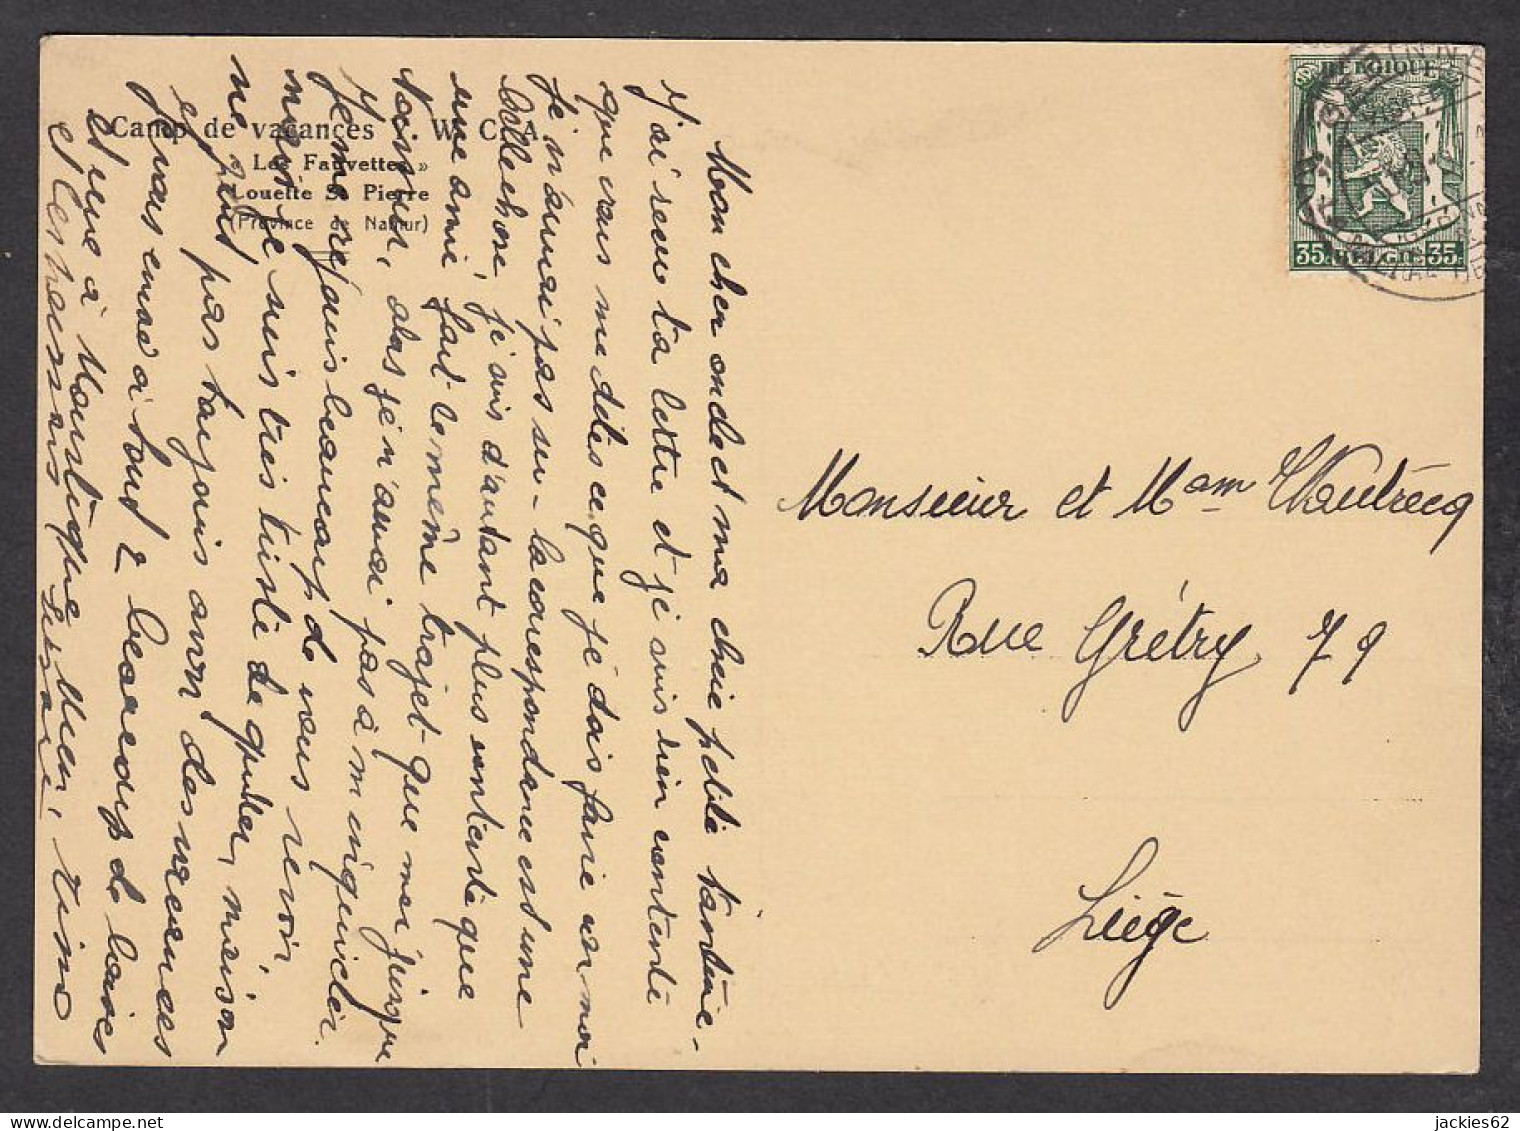 Mon cher oncle et ma chère petite tantine,
J'ai recu ta lettre et je suis bien contente
que vous me dites ce que je dois faire car moi
je n'aurai pas su - la correspondance est une
belle chose, je suis d'autant plus contente que
une amie fait le même trajet que moi jusque
Namur, alas je n'aurai pas à m'inquieter.
Je me réjouis beaucoup de vous revoir
mais je suis très triste de quitter, maison
ne peut pas toujours avoir des vacances
et
Je vous embrasse à tous 2 beaucoup de baisers
et
Camp de vacances Y. W. C. A.
« Les Fauvettes »
Louette St Pierre
(Province de Namur)
Monsieur et Mam Wautrecq
Rue Grétry 79
Liège
BELGIQUE
35c BELGIE 35c
jackies62